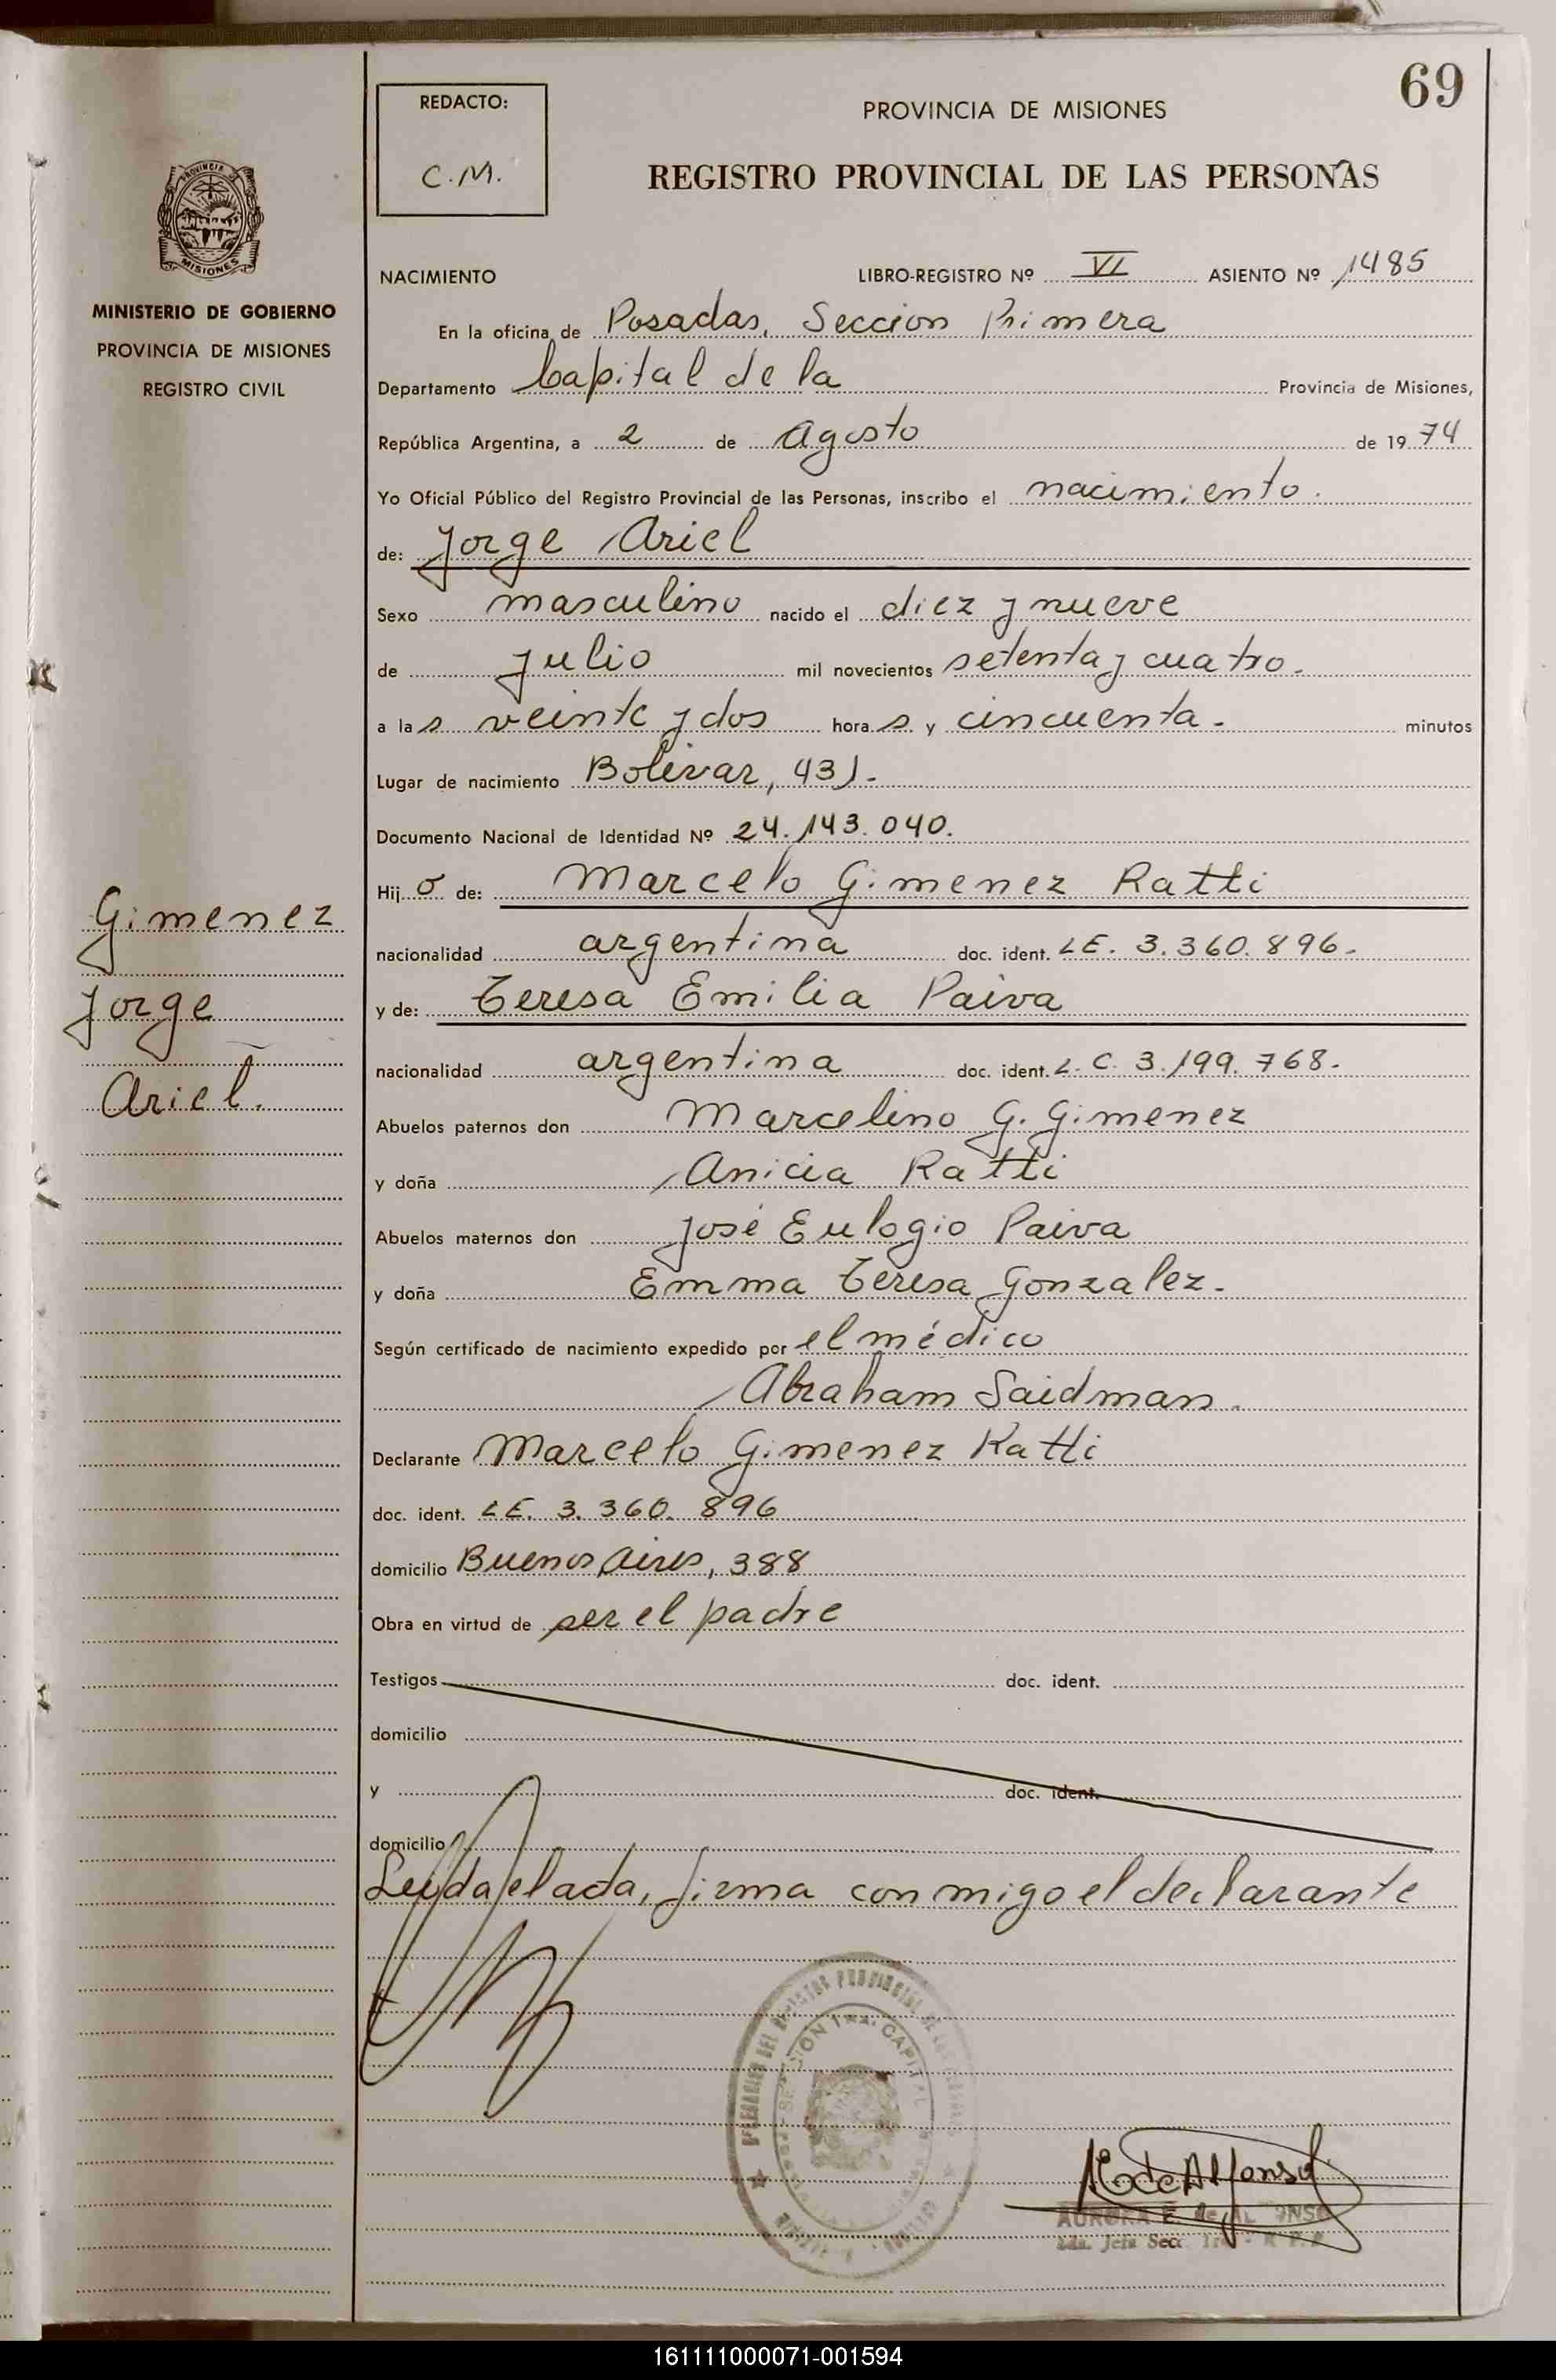 69
REDACTO:
C.M.
PROVINCIA DE MISIONES
REGISTRO PROVINCIAL DE LAS PERSONAS
PROVINCIA
MISIONES
MINISTERIO DE GOBIERNO
PROVINCIA DE MISIONES
REGISTRO CIVIL
Gimenez
Jorge
Ariel.
NACIMIENTO LIBRO-REGISTRO Nº VI ASIENTO Nº 1485
En la oficina de Posadas, Seccion Primera
Departamento Capital de la Provincia de Misiones,
República Argentina, a 2 de Agosto de 1974
Yo Oficial Público del Registro Provincial de las Personas, inscribo el nacimiento.
de: Jorge Ariel
Sexo masculino nacido el diez y nueve
de julio mil novecientos setenta y cuatro.
a las veinte y dos horas y cincuenta.- minutos
Lugar de nacimiento Bolivar, 431.-
Documento Nacional de Identidad Nº 24.143.040.
Hijo de: Marcelo Gimenez Ratti
nacionalidad argentina doc. ident. LE. 3.360.896.-
y de: Teresa Emilia Paiva
nacionalidad argentina doc. ident. L.C. 3.199.768.-
Abuelos paternos don Marcelino G. Gimenez
y doña Anicia Ratti
Abuelos maternos don José Eulogio Paiva
y doña Emma Teresa Gonzalez.-
Según certificado de nacimiento expedido por el médico
Abraham Saidman.
Declarante Marcelo Gimenez Ratti
doc. ident. LE. 3.360.896
domicilio Buenos Aires, 388
Obra en virtud de ser el padre
Testigos doc. ident.
domicilio
y doc. ident.
domicilio
Leida el acta, firma conmigo el declarante
AURORA E. de ALFONSO
Jefa Secc. 1ra. - R.P.P.
161111000071-001594